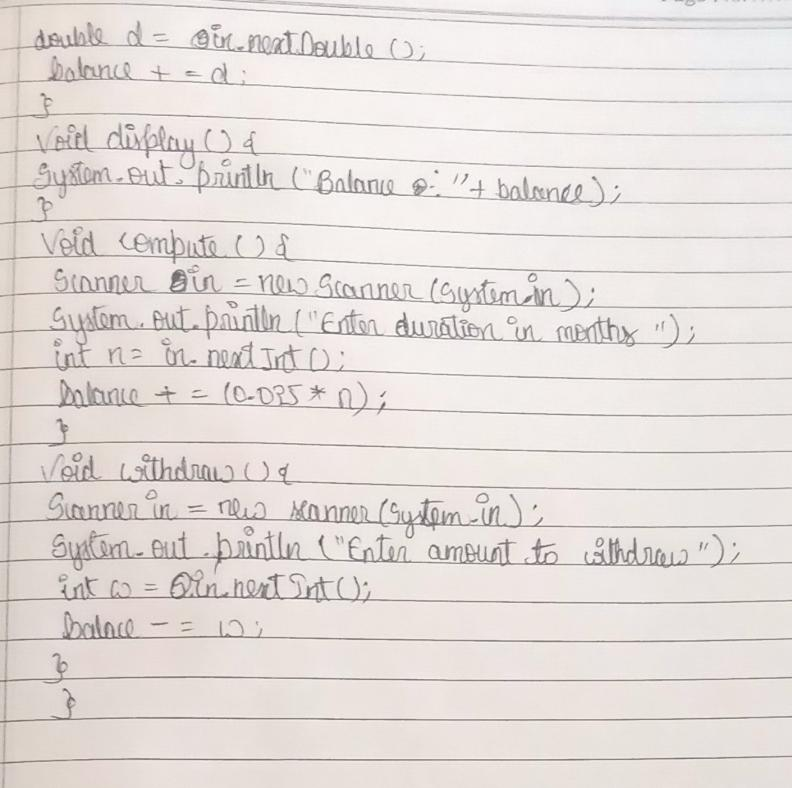 double d = in.nextDouble ();
balance + = d;
}
Void display () {
System.out.println ("Balance : "+ balance);
}
Void compute () {
Scanner in = new Scanner (System.in);
System.out.println ("Enter duration in months ");
int n = in.nextInt ();
balance + = (0.035 * n);
}
Void withdraw () {
Scanner in = new scanner (System.in);
System.out.println ("Enter amount to withdraw");
int w = in.nextInt ();
balnce - = w;
}
}